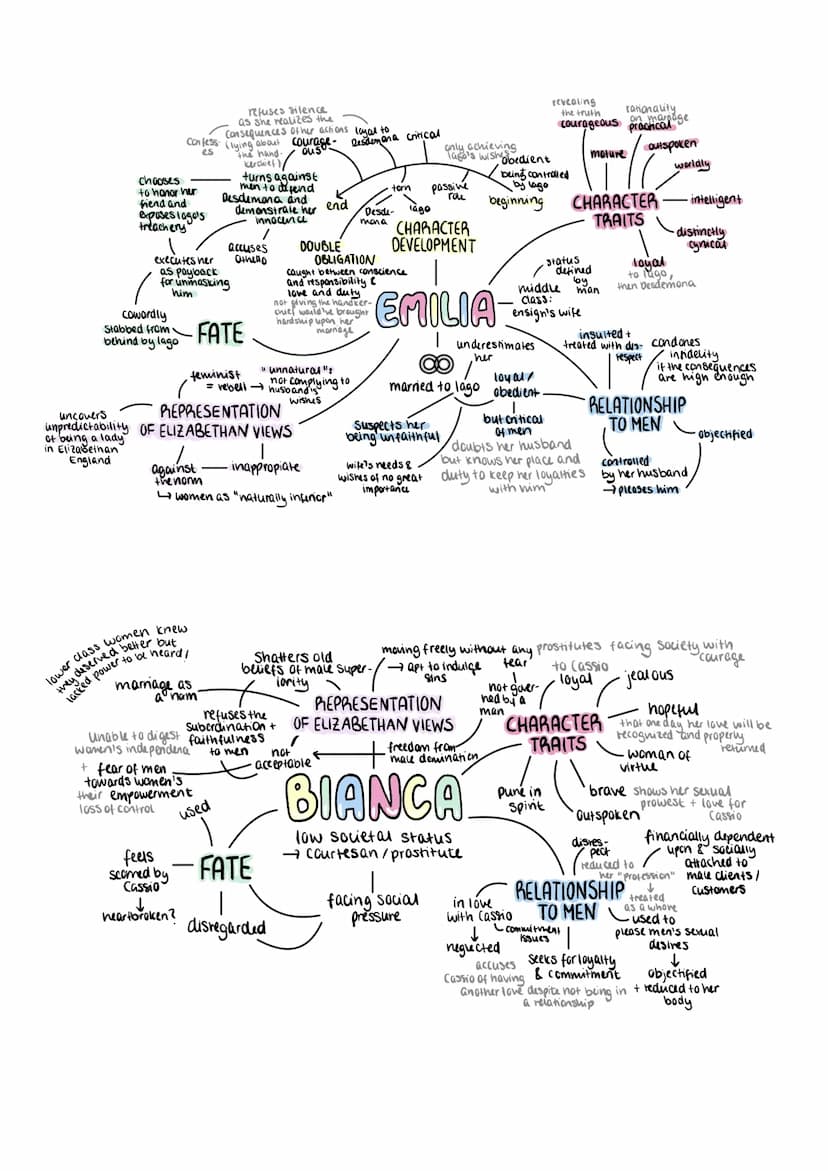 refuses silence
as she realizes the
consequences of her actions
(lying about
the hand-
kerchief)
confess-
es
courage-
ous
loyal to
Desdemona
critical
only achieving
Iago's wishes
obedient
being controlled
by Iago
beginning
passive
role
torn
Desde-
mona
Iago
end
CHARACTER
DEVELOPMENT
chooses
to honor her
friend and
exposes Iago's
treachery
turns against
men to defend
Desdemona and
demonstrate her
innocence
accuses
Othello
executes her
as payback
for unmasking
him
cowardly
stabbed from
behind by Iago
FATE
DOUBLE
OBLIGATION
caught between conscience
and responsibility &
love and duty
not giving the handker-
chief would've brought
hardship upon her
marriage
EMILIA
revealing
the truth
courageous
rationality
on marriage
practical
mature
outspoken
worldly
intelligent
distinctly
cynical
loyal
to Iago,
then Desdemona
CHARACTER
TRAITS
status
defined
by
man
middle
class:
ensign's wife
underestimates
her
married to Iago
loyal/
obedient
but critical
of men
doubts her husband
but knows her place and
duty to keep her loyalties
with him
suspects her
being unfaithful
wife's needs &
wishes of no great
importance
insulted +
treated with dis-
respect
condones
infidelity
if the consequences
are high enough
RELATIONSHIP
TO MEN
objectified
controlled
by her husband
→ pleases him
feminist
= rebell →
"unnatural":
not complying to
husband's
wishes
REPRESENTATION
OF ELIZABETHAN VIEWS
uncovers
unpredictability
of being a lady
in Elizabethan
England
against
the norm
inappropiate
↳ women as "naturally inferior"
lower class women knew
they deserved better but
lacked power to be heard!
marriage as
a norm
Shatters old
beliefs of male super-
iority
moving freely without any
fear
→ apt to indulge
sins
prostitutes facing society with
courage
not gover-
ned by a
man
REPRESENTATION
OF ELIZABETHAN VIEWS
refuses the
subordination +
faithfulness
to men
unable to digest
women's independence
+ fear of men
towards women's
their empowerment
loss of control
not
acceptable
freedom from
male domination
BIANCA
low societal status
→ courtesan / prostitute
facing social
pressure
used
feels
scorned by
Cassio
↓
heartbroken?
FATE
disregarded
to Cassio
loyal
jealous
hopeful
that one day her love will be
recognized and properly
returned
woman of
virtue
brave shows her sexual
prowest + love for
Cassio
outspoken
pure in
spirit
CHARACTER
TRAITS
disres-
pect
reduced to
her "profession"
↓
treated
as a whore
financially dependent
upon & socially
attached to
male clients /
customers
RELATIONSHIP
TO MEN
in love
with Cassio
↓
neglected
commitment
issues
seeks for loyalty
& commitment
accuses
Cassio of having
another love despite not being in
a relationship
used to
please men's sexual
desires
↓
objectified
+ reduced to her
body